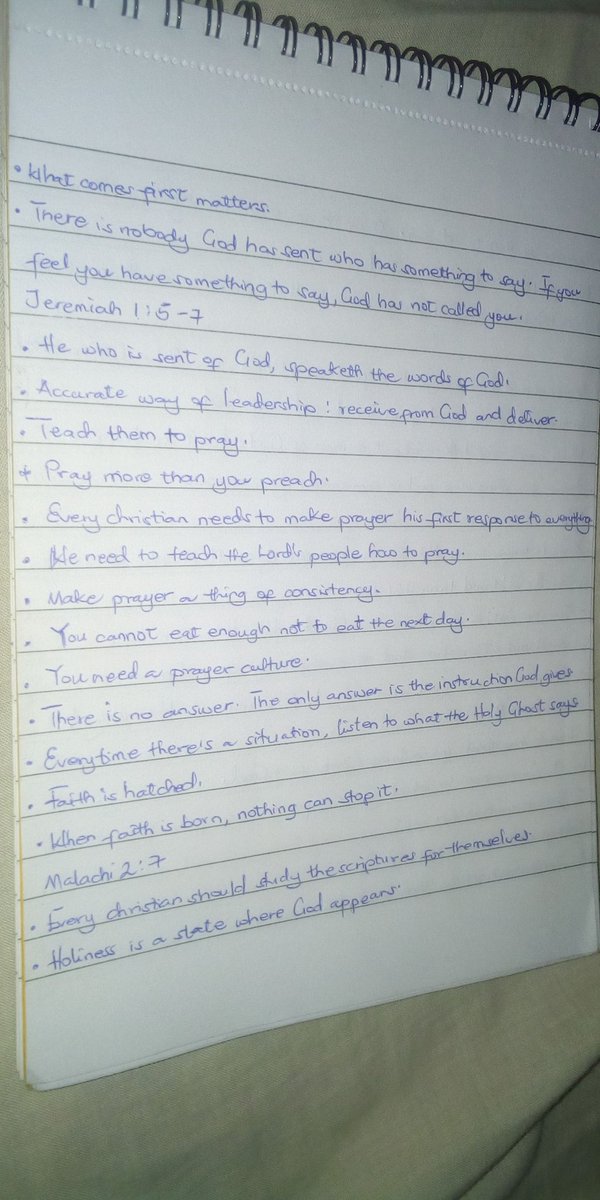 • What comes first matters.
• There is nobody God has sent who has something to say. If you
feel you have something to say, God has not called you.
Jeremiah 1:5-7
• He who is sent of God, speaketh the words of God.
• Accurate way of leadership: receive from God and deliver.
• Teach them to pray.
+ Pray more than you preach.
• Every christian needs to make prayer his first response to everything
• We need to teach the Lord's people how to pray.
• Make prayer a thing of consistency.
• You cannot eat enough not to eat the next day.
• You need a prayer culture.
• There is no answer. The only answer is the instruction God gives
• Everytime there's a situation, listen to what the Holy Ghost says
• Faith is hatched.
• When faith is born, nothing can stop it.
Malachi 2:7
• Every christian should study the scriptures for themselves.
• Holiness is a state where God appears.